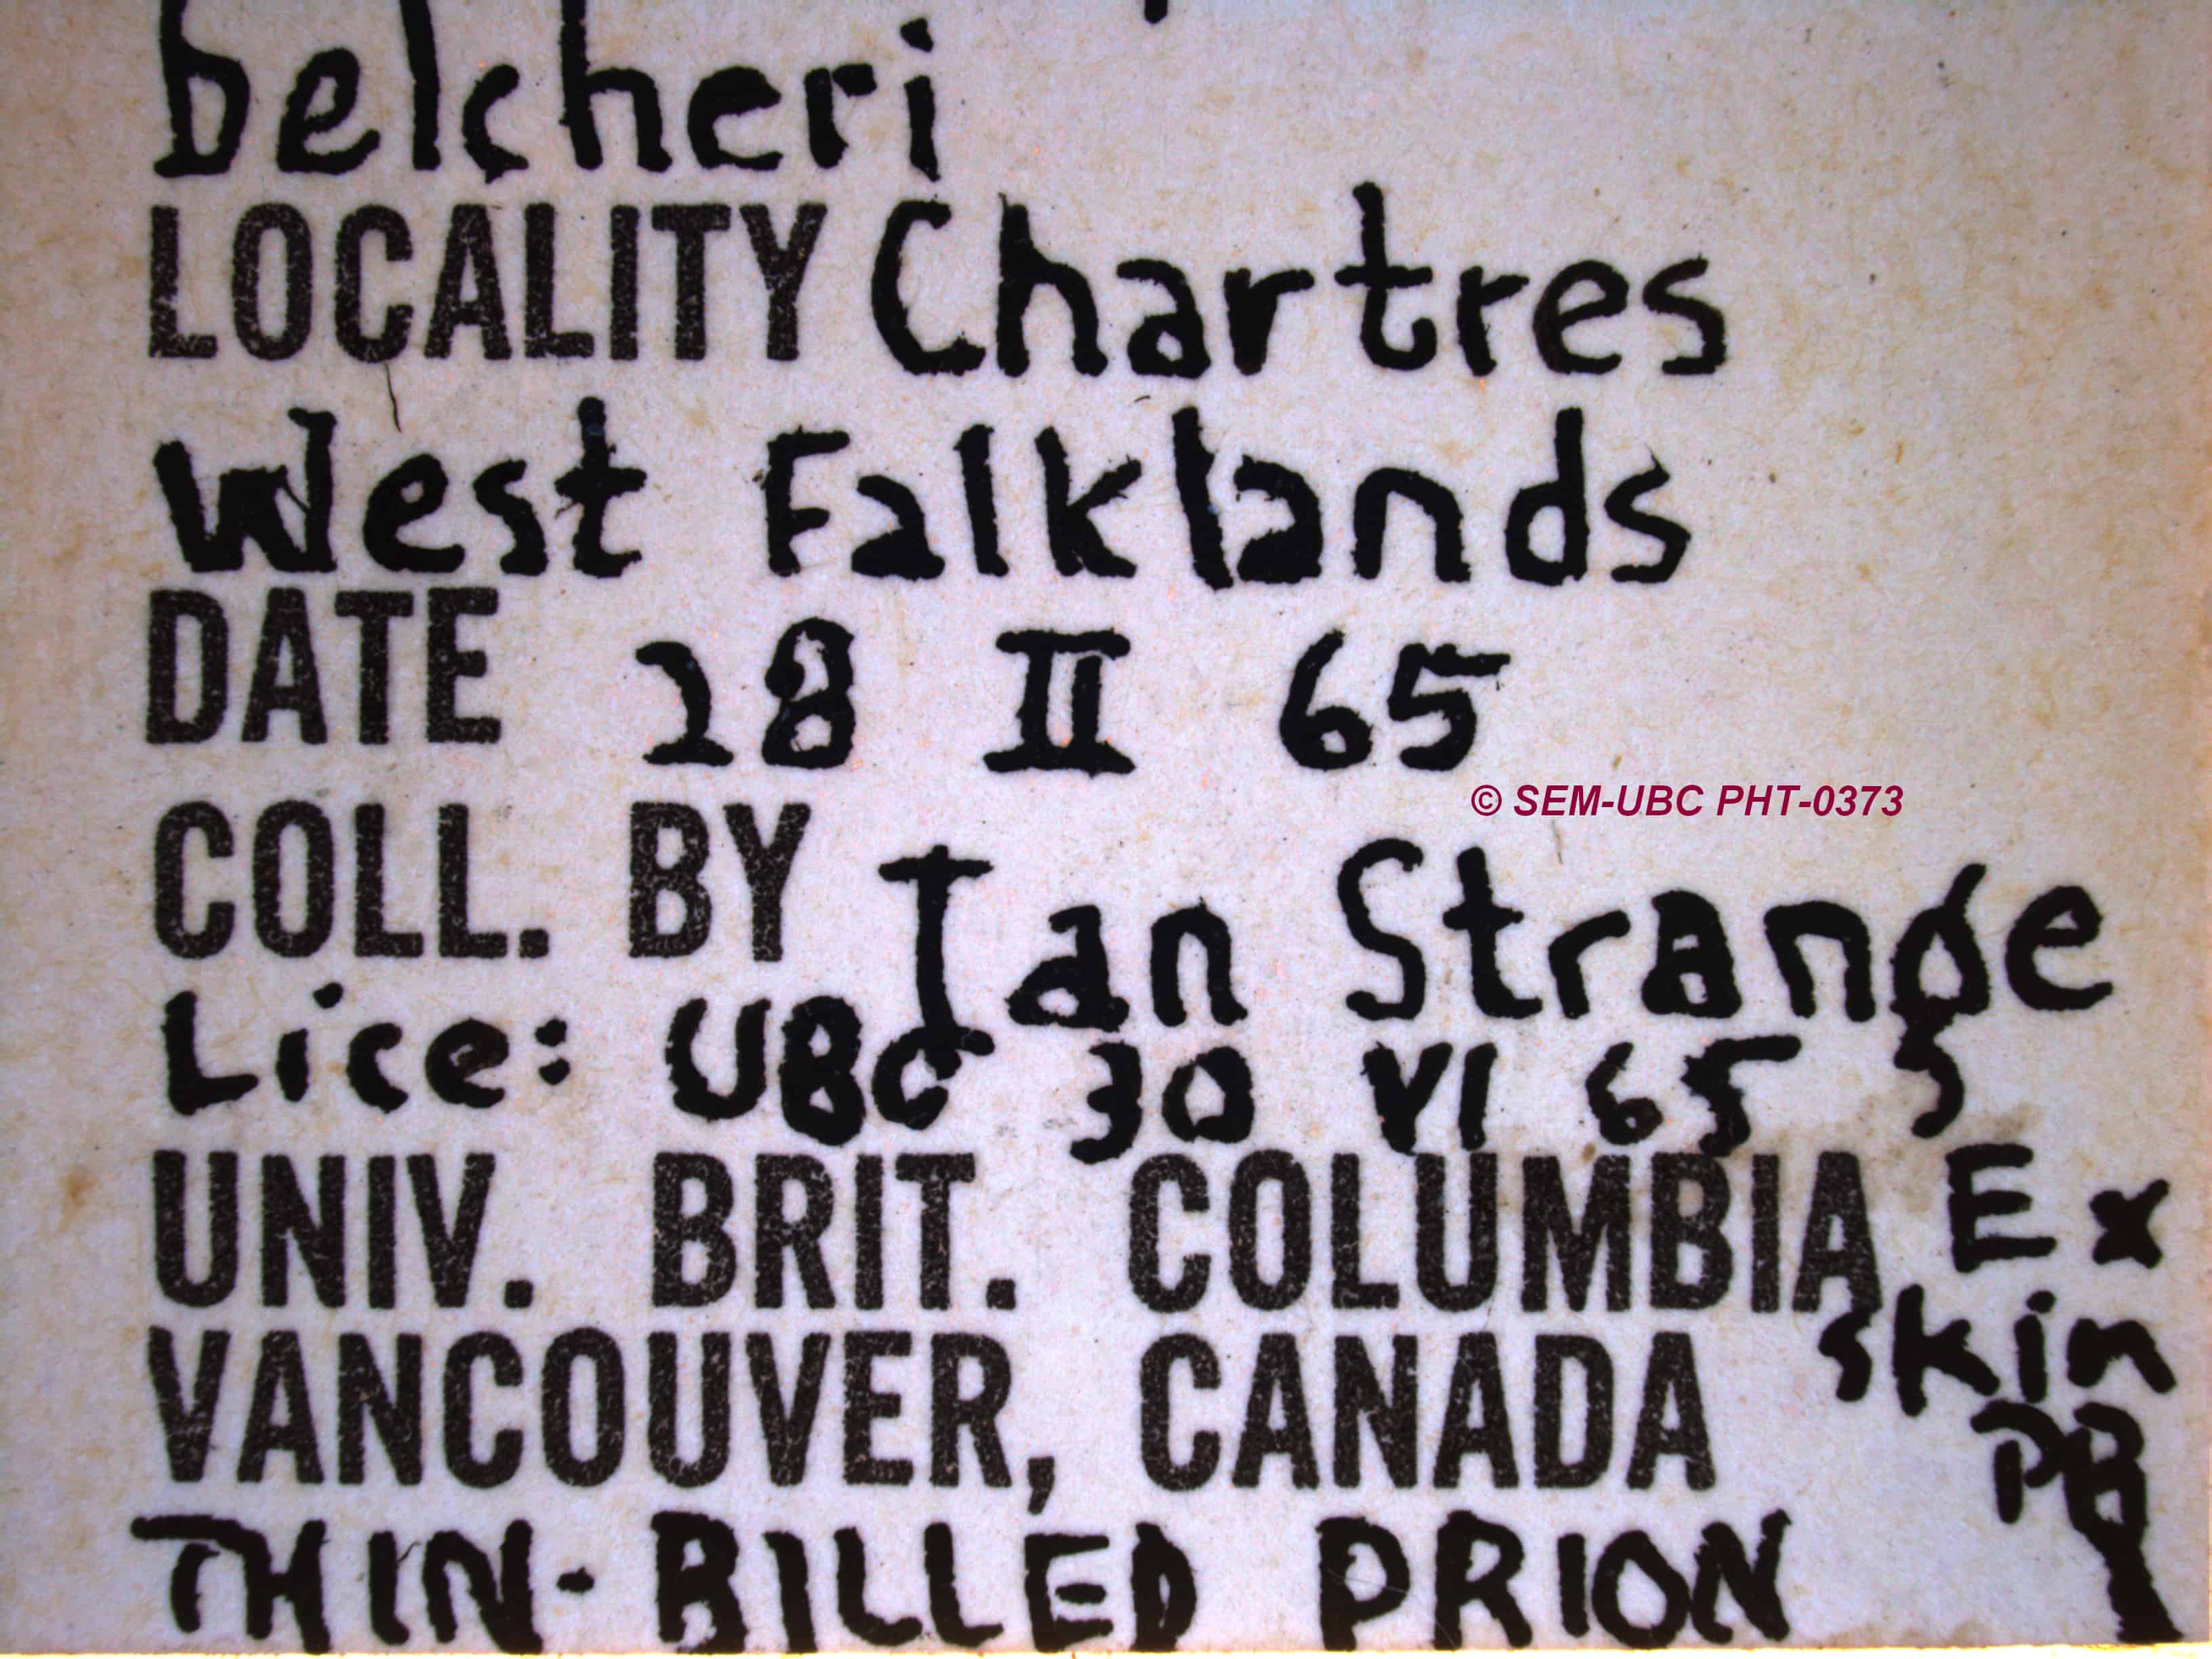 belcheri
LOCALITY Chartres
West Falklands
DATE 28 II 65
© SEM-UBC PHT-0373
COLL. BY Ian Strange
Lice: UBC 30 VI 65
UNIV. BRIT. COLUMBIA Ex
VANCOUVER, CANADA skin
PB
THIN-BILLED PRION